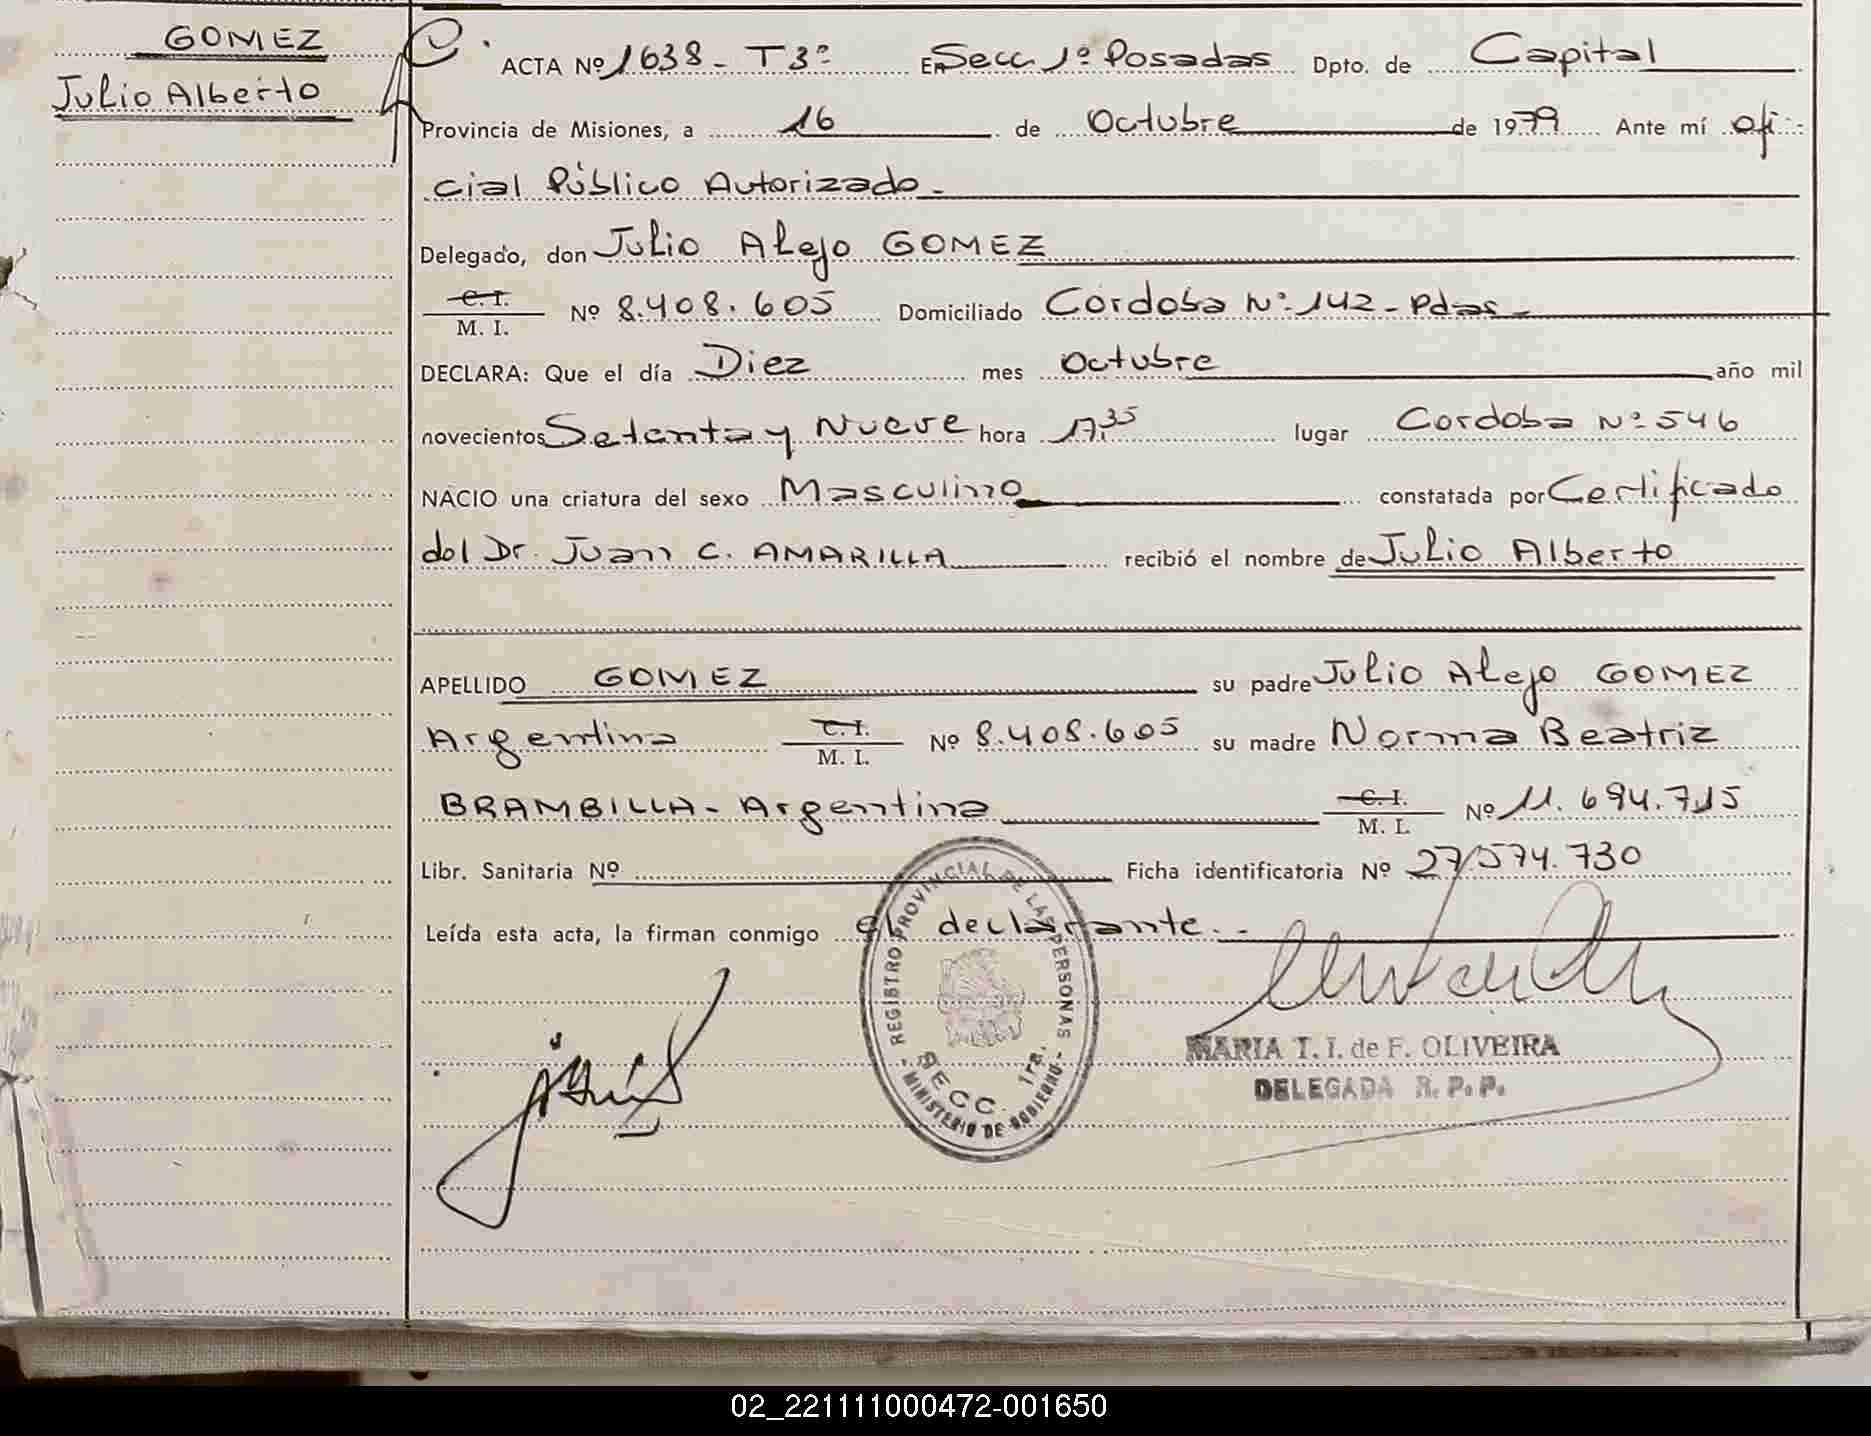 GOMEZ
Julio Alberto
ACTA Nº 1638 - T 3º En Secc 1º Posadas Dpto. de Capital
Provincia de Misiones, a 16 de Octubre de 1979 Ante mí ofi
cial Público Autorizado.
Delegado, don Julio Alejo GOMEZ
C. I.
M. I. Nº 8.408.605 Domiciliado Córdoba Nº 142 - Pdas -
DECLARA: Que el día Diez mes Octubre año mil
novecientos Setenta y Nueve hora 17,35 lugar Cordoba Nº 546
NACIO una criatura del sexo Masculino constatada por Certificado
del Dr. Juan C. AMARILLA recibió el nombre de Julio Alberto
APELLIDO GOMEZ su padre Julio Alejo GOMEZ
Argentina C. I.
M. I. Nº 8.408.605 su madre Norma Beatriz
BRAMBILLA - Argentina C. I.
M. I. Nº 11.694.715
Libr. Sanitaria Nº Ficha identificatoria Nº 27.574.730
Leída esta acta, la firman conmigo el declarante.-
REGISTRO PROVINCIAL DE LAS PERSONAS
SECC. 1ra.
- MINISTERIO DE GOBIERNO -
MARIA T. I. de F. OLIVEIRA
DELEGADA R. P. P.
02_221111000472-001650